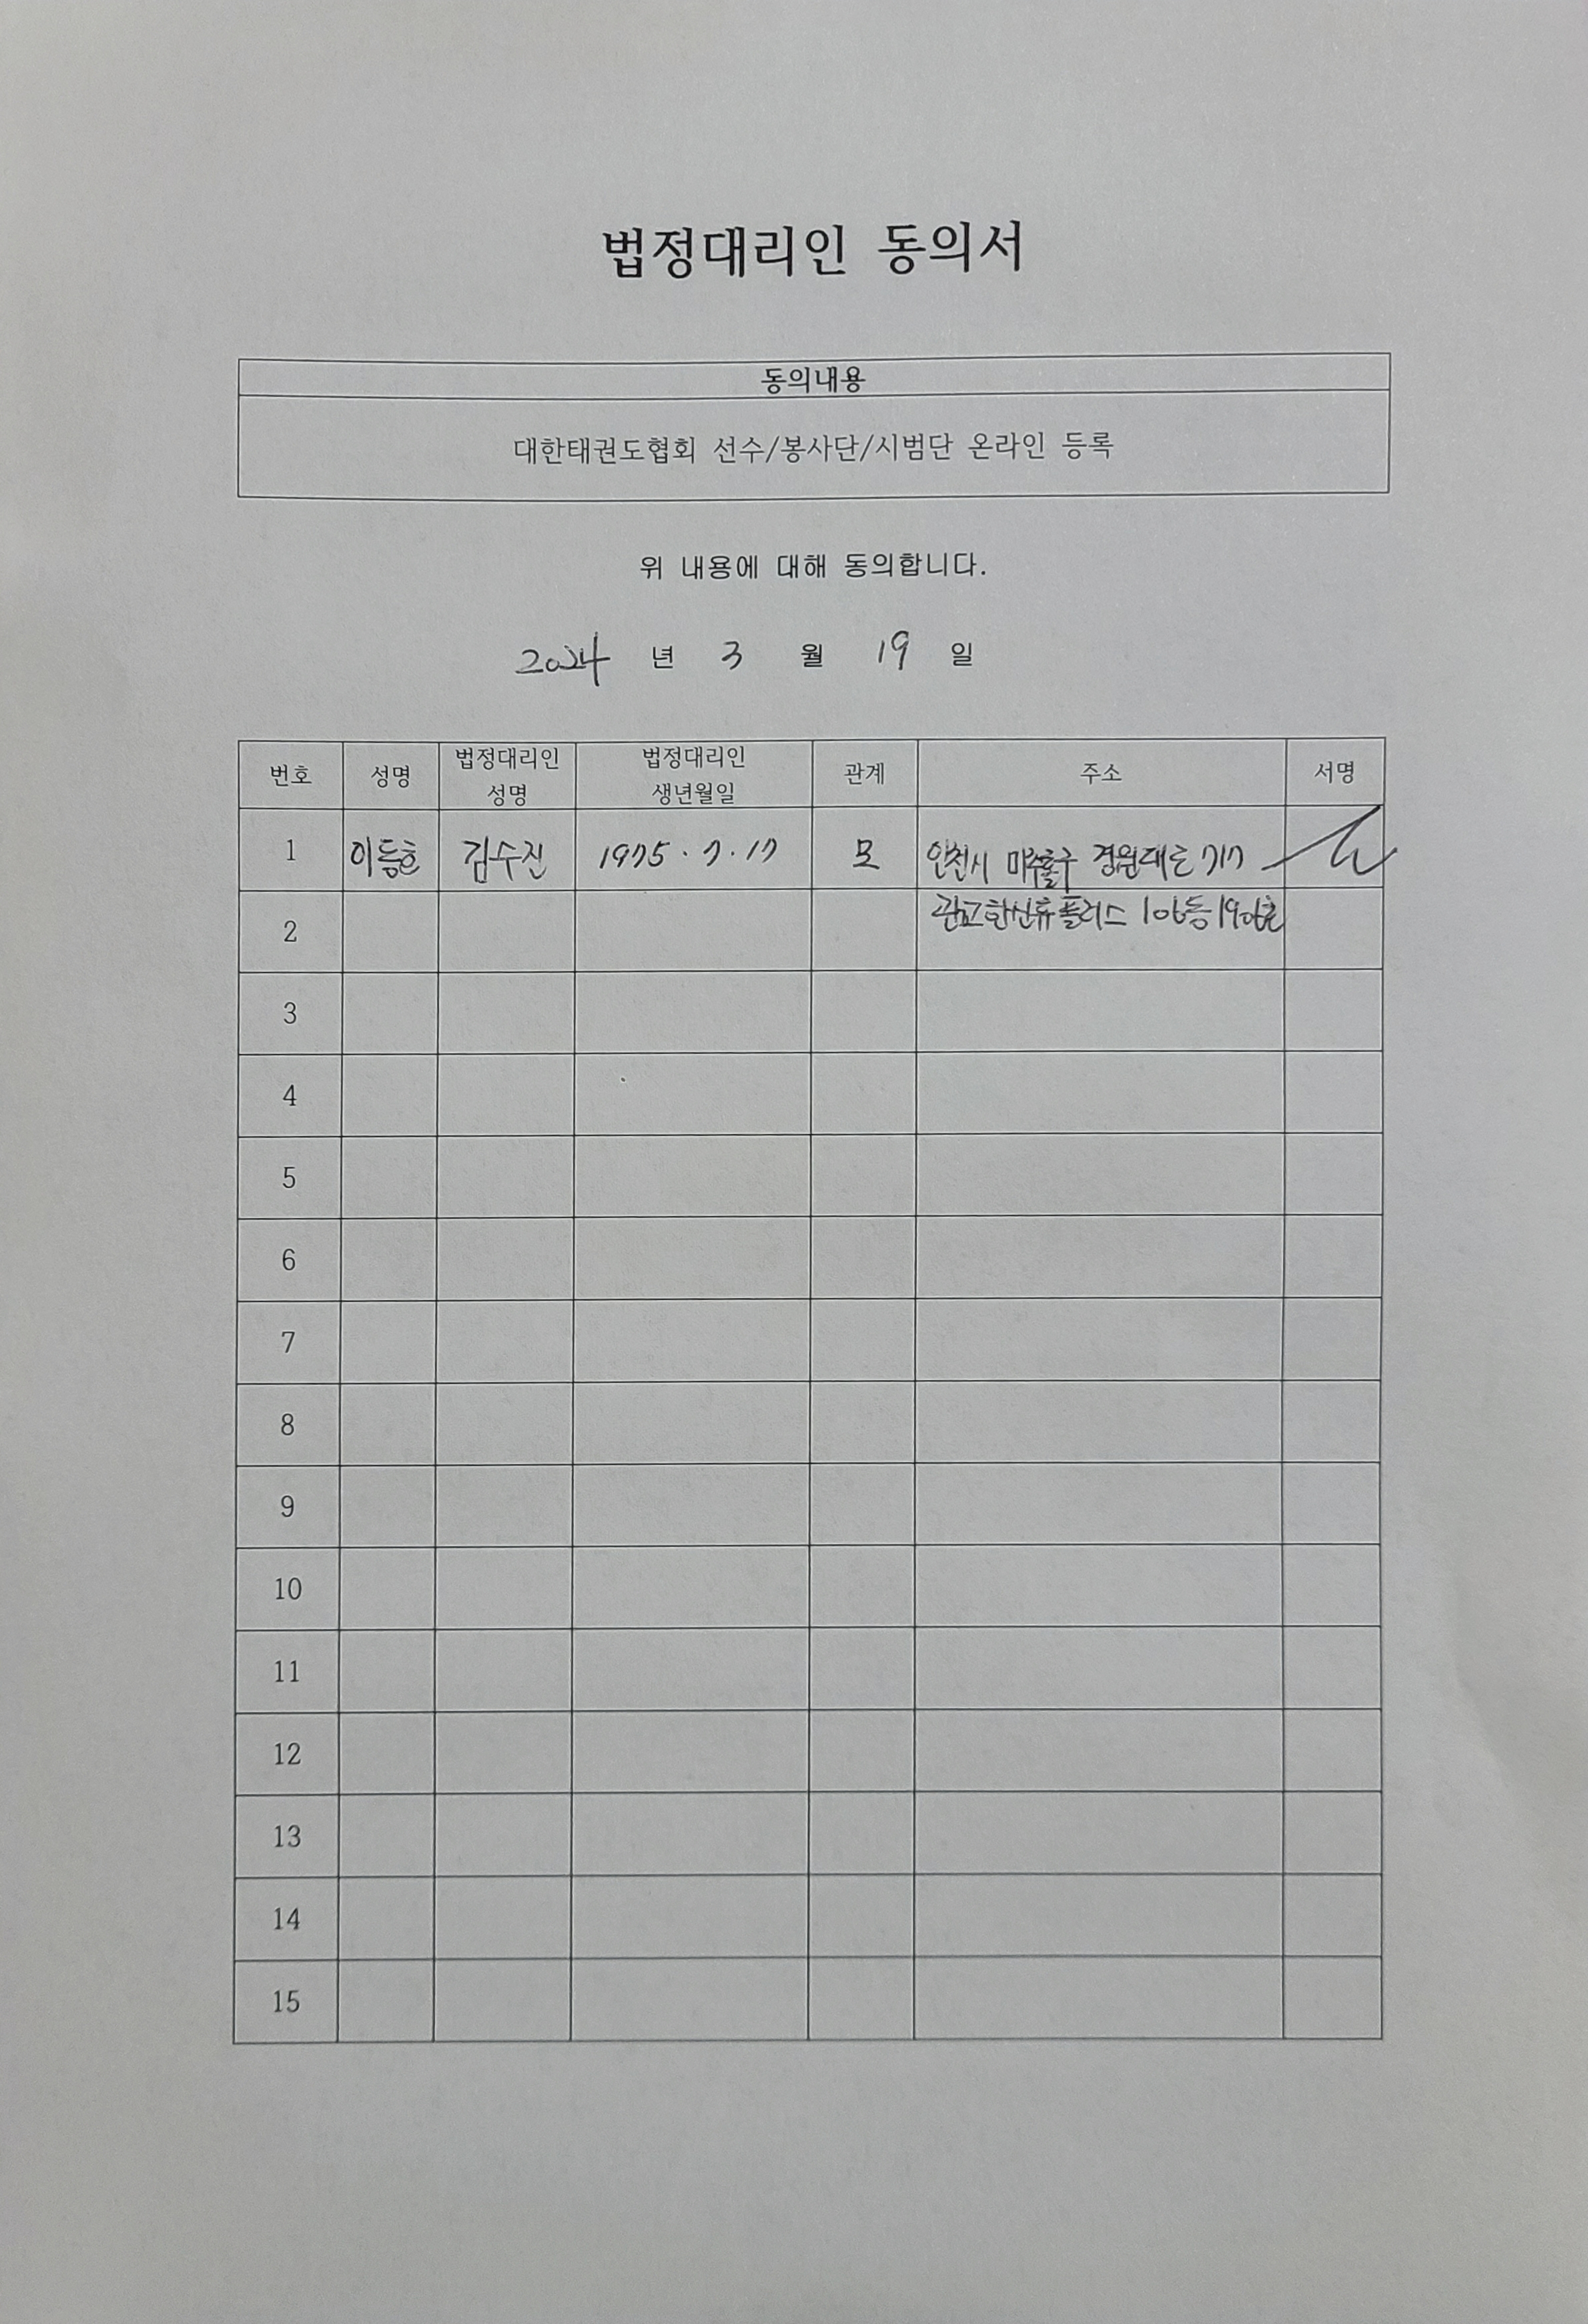 법정대리인 동의서
동의내용
대한태권도협회 선수/봉사단/시범단 온라인 등록
위 내용에 대해 동의합니다.
2024 년 3 월 19 일
번호 성명 법정대리인 성명 법정대리인 생년월일 관계 주소 서명
1 이동호 김수진 1975 . 7 . 17 모 인천시 미추홀구 경원대로 717
2 관교한신휴플러스 106동 1906호
3
4
5
6
7
8
9
10
11
12
13
14
15